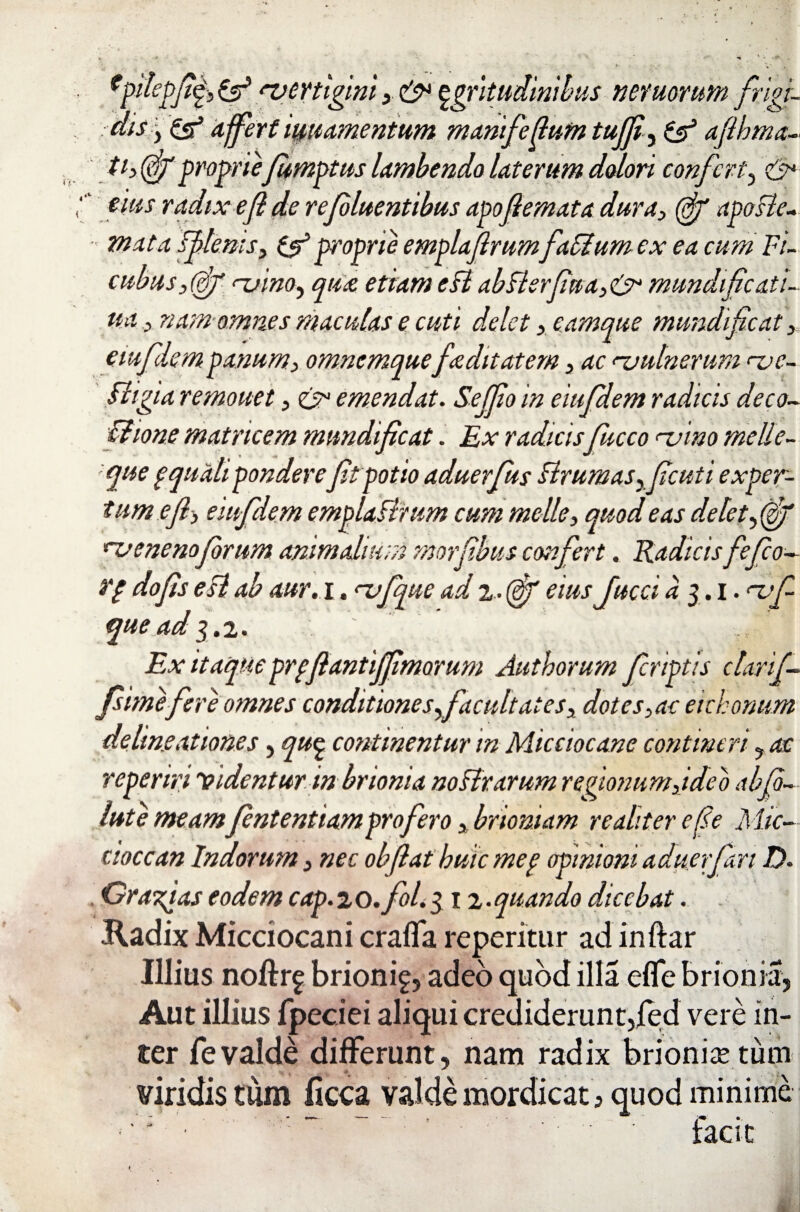 epilepſię, & vertigini, & ęgritudinibus neruorum frigi-
dis, & affert iuuamentum manifeſtum tuſſi, & aſthma-
ti, & proprie ſumptus lambendo laterum dolori confert, &
eius radix eſt de reſoluentibus apoſtemata dura, & apoſte-
mata ſplenis, & proprie emplaſtrum factum ex ea cum Fi-
cubus, & vino, quæ etiam eſt abſterſiua, & mundificati-
ua, nam omnes maculas e cuti delet, eamque mundificat,
eiuſdem panum, omnemque fæditatem, ac vulnerum ve-
ſtigia remouet, & emendat. Seſſio in eiuſdem radicis deco-
ctione matricem mundificat. Ex radicis ſucco vino melle-
que ęquali pondere fit potio aduerſus ſtrumas, ſicuti exper-
tum eſt, eiuſdem emplaſtrum cum melle, quod eas delet, &
venenoſorum animalium morſibus confert. Radicis feſco-
rę doſis eſt ab aur. 1. vſque ad 2. & eius ſucci à ʒ.1. vſ-
que ad ʒ.2.
Ex itaque pręſtantiſſimorum Authorum ſcriptis clariſ-
ſimè fere omnes conditiones, facultates, dotes, ac eichonum
delineationes, quę continentur in Micciocane contineri, ac
reperiri videntur in brionia noſtrarum regionum, ideò abſo-
lutè meam ſententiam profero, brioniam realiter eſſe Mic-
cioccan Indorum, nec obſtat huic meę opinioni aduerſari D.
Grazias eodem cap. 20. fol. 312. quando dicebat.
Radix Micciocani craſſa reperitur ad inſtar
Illius noſtrę brionię, adeò quòd illā eſſe brioniā,
Aut illius ſpeciei aliqui crediderunt, ſed verè in-
ter ſe valdè differunt, nam radix brioniæ tùm
viridis tùm ſicca valdè mordicat, quod minimè
facit